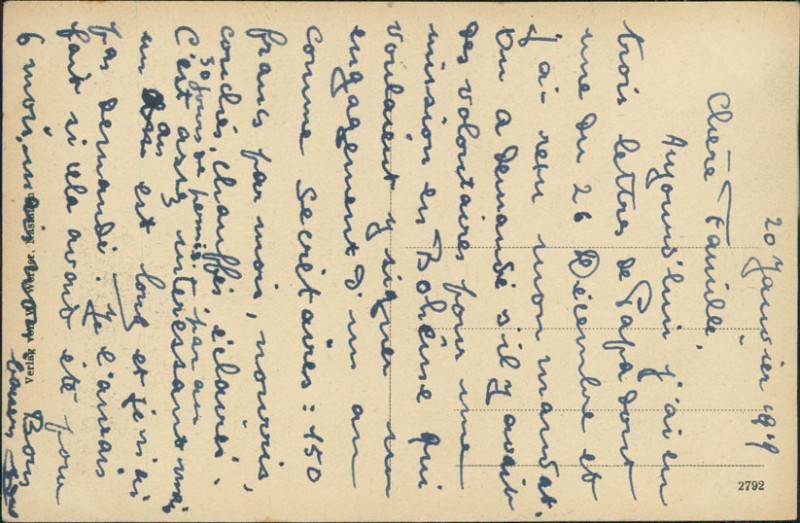 20 Janvier 1919
Chère Famille,
Aujourd'hui j'ai eu
trois lettres de Papa dont
une du 26 Décembre et
j'ai reçu mon mandat.
On a demandé s'il y avait
des volontaires pour une
mission en Bohême qui
voulaient y signer un
engagement d'un an
comme secrétaires : 150
francs par mois, nourris,
couchés, chauffés, éclairés,
30 jours de permis. par an
C'est assez intéressant mais
un an est long et je n'ai
pas demandé. Je l'aurais
fait si cela avait été pour
6 mois, Bons
baisers
Verlag von
2792